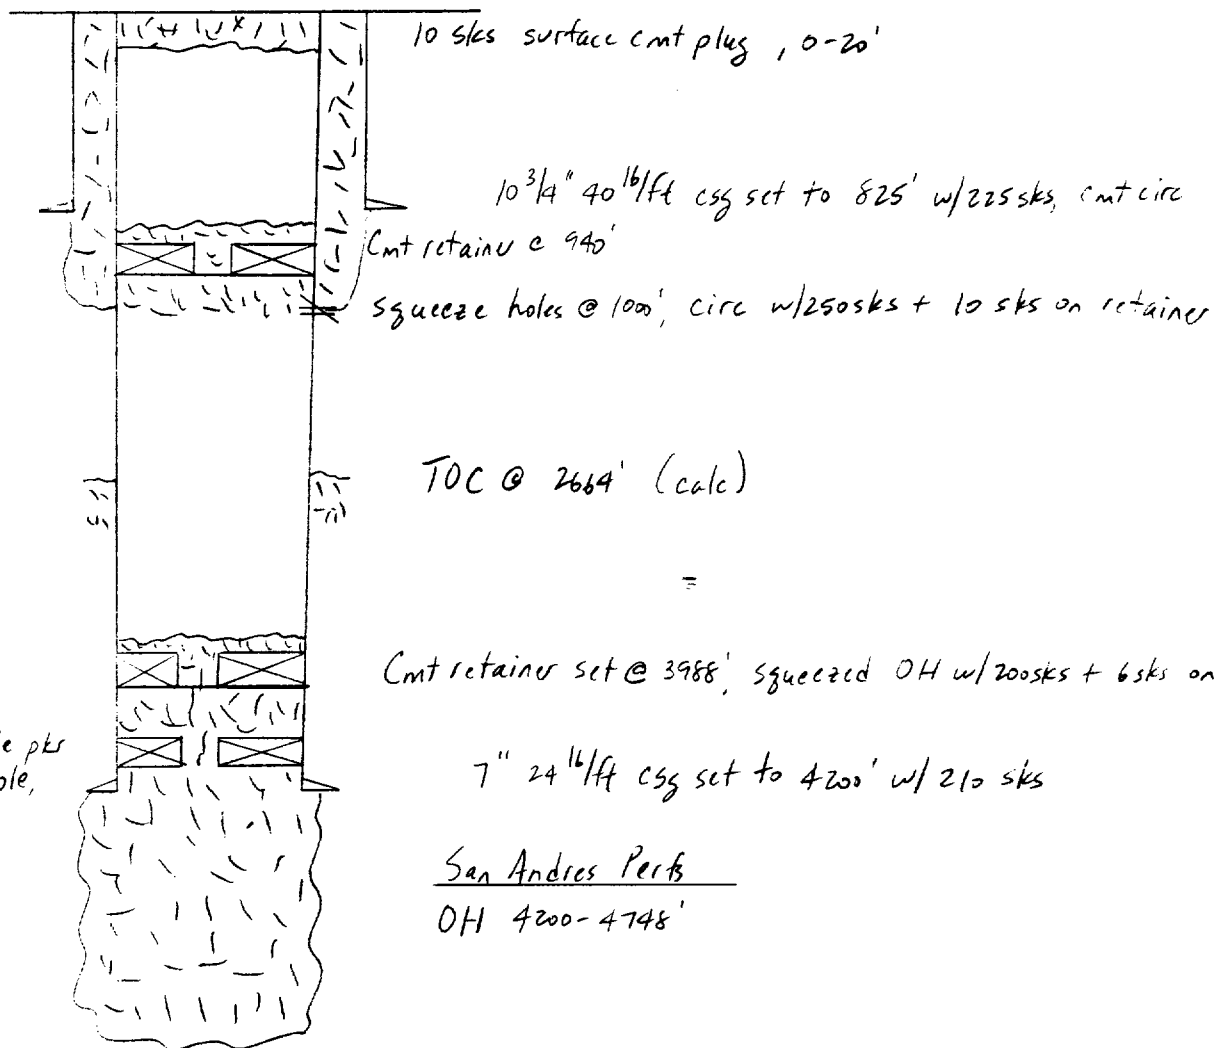 10 sks surface cmt plug, 0-20'
10 3/4" 40 lb/ft csg set to 825' w/225 sks, cmt circ
Cmt retainer @ 940'
squeeze holes @ 1000', circ w/250sks + 10 sks on retainer
TOC @ 2664' (calc)
Cmt retainer set @ 3988', squeezed OH w/200sks + 6sks on
pkr
7" 24 lb/ft csg set to 4200' w/ 210 sks
San Andres Perfs
OH 4200-4748'